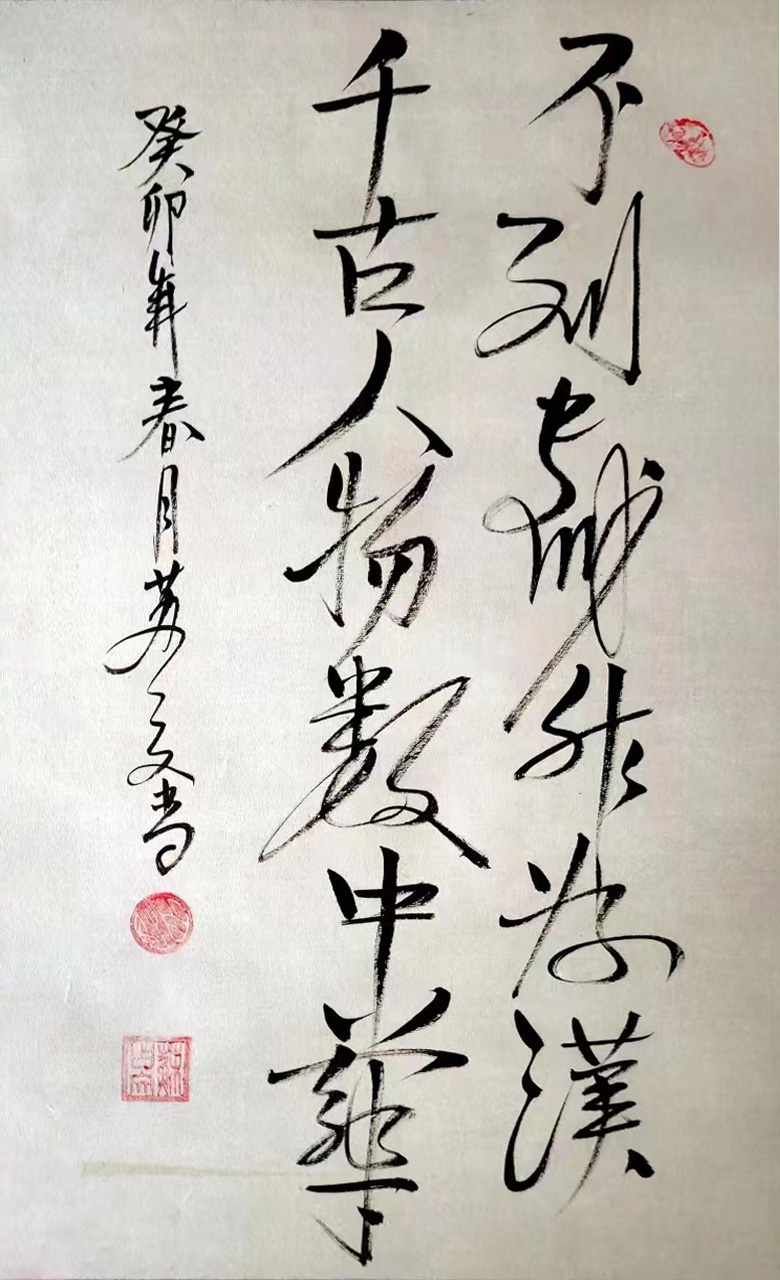 不到長城非好漢
千古人物数中華
癸卯年春月苏文尚